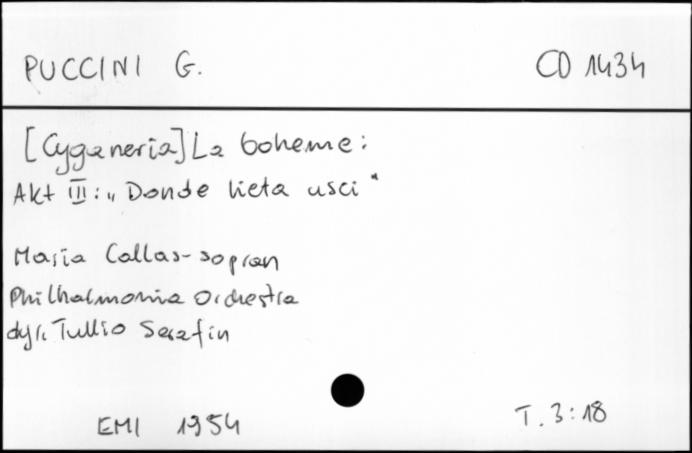 PUCCINI G. CD 1434
[Cyganeria] La boheme:
Akt III: „Donde lieta usci"
Maria Callas - sopran
Philharmonia Orchestra
dyr. Tullio Serafin
EMI 1954 T. 3:18